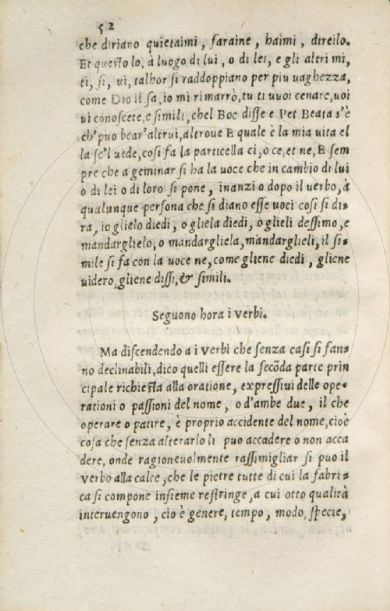 52
che diriano quietaimi, faraine, haimi, direilo.
Et questo lo, à luogo di lui, o di lei, e gli altri mi,
ti, si, ui, talhor si raddoppiano per piu uaghezza,
come Dio il sa, io mi rimarrò, tu ti uuoi cenare, uoi
ui conoscete, e simili, chel Boc disse e Pet Beata s'è
ch'puo bear'altrui, altroue E quale è la mia uita el
la se'l uede, cosi fa la particella ci, o ce, et ne, E sem
pre che a geminar si ha la uoce che in cambio di lui
o di lei o di loro si pone, inanzi o dopo il uerbo, à
qualunque persona che si diano esse uoci cosi si di
ra, io glielo diedi, o gliela diedi, o glieli dessimo, e
mandarglielo, o mandargliela, mandarglieli, il si=
mile si fa con la uoce ne, come gliene diedi, gliene
uidero, gliene dissi, & simili.
Seguono hora i verbi.
Ma discendendo a i verbi che senza casi si fan=
no declinabili, dico quelli essere la secōda parte prin
cipale richiesta alla oratione, expressiui delle ope=
rationi o passioni del nome, o d'ambe due, il che
operare o patire, è proprio accidente del nome, cioè
cosa che senza alterarlo li puo accadere o non acca
dere, onde ragioneuolmente rassimigliar si puo il
verbo alla calce, che le pietre tutte di cui la fabri=
ca si compone insieme restringe, a cui otto qualità
interuengono, cio è genere, tempo, modo, specie,